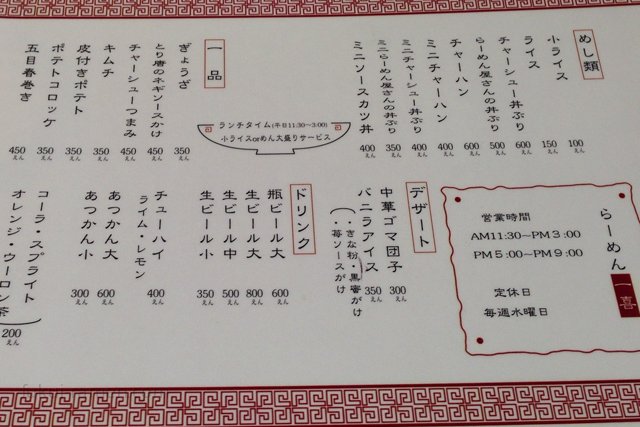 めし類
小ライス 100えん
ライス 150えん
チャーシュー丼ぶり 500えん
らーめん屋さんの丼ぶり 600えん
チャーハン 600えん
ミニチャーハン 400えん
ミニチャーシュー丼ぶり 400えん
ミニらーめん屋さんの丼ぶり 350えん
ミニソースカツ丼 400えん
ランチタイム(平日11:30~3:00)
小ライスorめん大盛りサービス
一品
ぎょうざ 350えん
とり唐のネギソースかけ 450えん
チャーシューつまみ 450えん
キムチ 350えん
皮付きポテト 350えん
ポテトコロッケ 350えん
五目春巻き 450えん
らーめん 一喜
営業時間
AM11:30~PM3:00
PM5:00~PM9:00
定休日
毎週水曜日
デザート
中華ゴマ団子 300えん
バニラアイス 350えん
(・きな粉・黒蜜がけ
・苺ソースがけ)
ドリンク
瓶ビール大 600えん
生ビール大 800えん
生ビール中 500えん
生ビール小 350えん
チューハイ 400えん
ライム・レモン
あつかん大 600えん
あつかん小 300えん
コーラ・スプライト
オレンジ・ウーロン茶 200えん